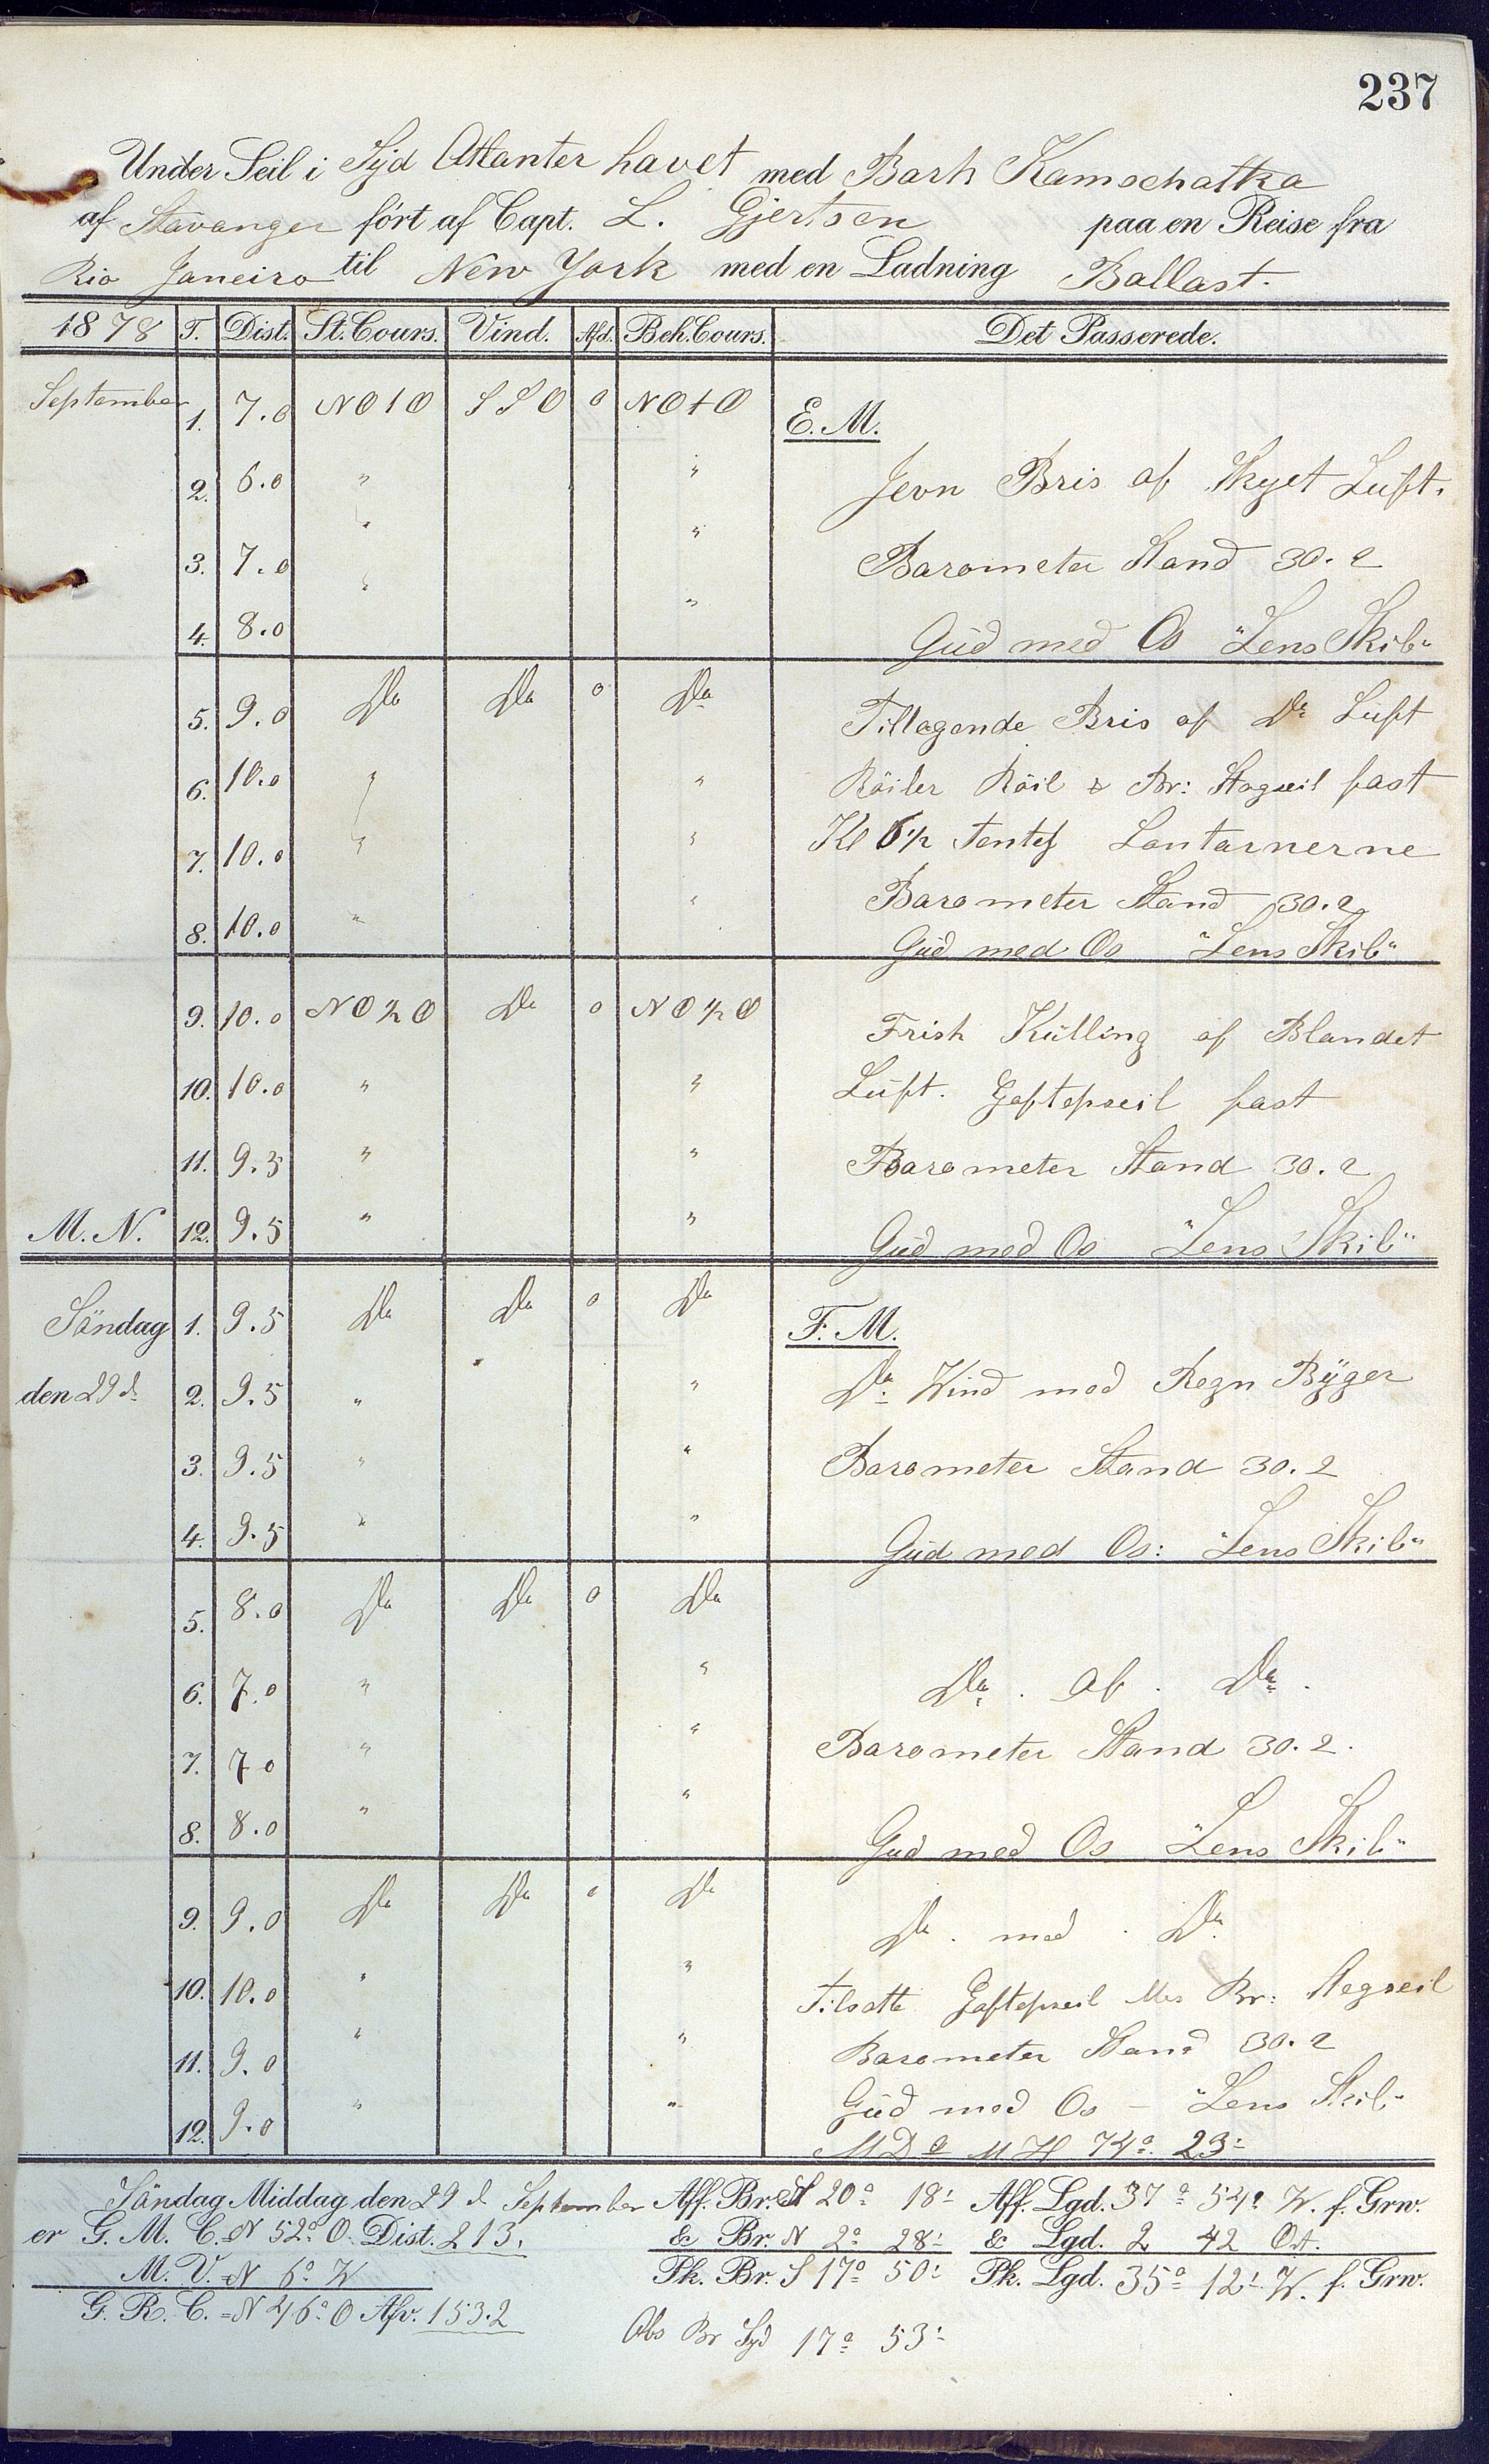 237
Under Seil i Syd Atlanter havet med Bark Kamschatka
af Stavanger ført af Capt. L. Gjertsen paa en Reise fra
Rio Janeiro til New York med en Ladning Ballast.
1878 T. Dist. St. Cours. Vind. Afd. Beh. Cours. Det Passerede.
September 1. 7.0 NO1O SSO 0 NO1O E. M.
2. 6.0 " " Jevn Bris af Skyet Luft.
3. 7.0 " " Barometer Stand 30.2
4. 8.0 " " Gud med Os "Lens Skib"
5. 9.0 Do Do 0 Do Tiltagende Bris af Do Luft
6. 10.0 " " Röiler Röil & Br: Stagseil fast
7. 10.0 " " Kl 6 1/2 tentes Lantarnerne
8. 10.0 " " Barometer Stand 30.2
Gud med Os "Lens Skib"
9. 10.0 NO1/2O Do 0 NO1/2O Frisk Kulling af Blandet
10. 10.0 " " Luft. Gaftopseil fast
11. 9.5 " " Barometer Stand 30.2
M. N. 12. 9.5 " " Gud med Os "Lens Skib"
Söndag 1. 9.5 Do Do 0 Do F. M.
den 29 d. 2. 9.5 " " Do Wind med Regn Byger
3. 9.5 " " Barometer Stand 30.2
4. 9.5 " " Gud med Os: "Lens Skib"
5. 8.0 Do Do 0 Do
6. 7.0 " " Do. af. Do.
7. 7 0 " " Barometer Stand 30.2.
8. 8.0 " " Gud med Os "Lens Skib"
9. 9.0 Do Do 0 Do Do. med. Do.
10. 10.0 " " Tilsatte Gaftopseil Mes Br: Stagseil
11. 9.0 " " Barometer Stand 30.2
12. 9.0 " " Gud med Os - "Lens Skib"
M H 74° 23'
Söndag Middag den 29 d September Aff. Br. 20° 18' Aff. Lgd. 37° 54' W. f. Grw.
er G. M. C. = N 52° O. Dist. 213. & Br. N 2° 28' & Lgd. 2 42 Ost.
M. V. = N 6° W Pk. Br. S 17° 50' Pk. Lgd. 35° 12' W. f. Grw.
G. R. C. = N 46° O Afv. 153.2
Obs Br Syd 17° 53'